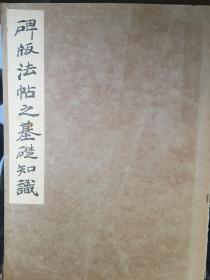 碑版法帖之基礎知識